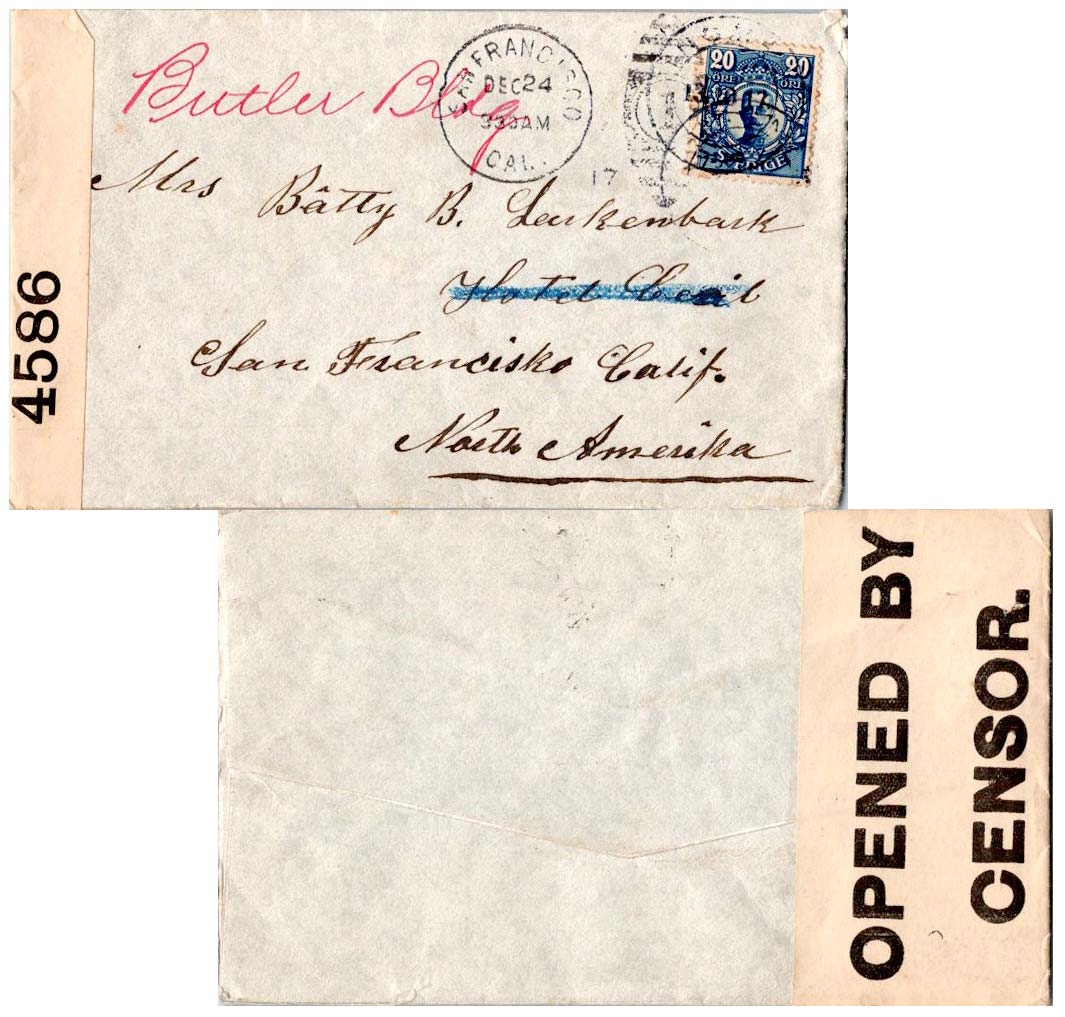 Butler Bldg.
SAN FRANCISCO
DEC 24
330 AM
CAL.
17
20 20
ÖRE ÖRE
SVERIGE
Mrs Bätty B.
Hotel Cecil
San Francisko Calif.
North Amerika
4586
OPENED BY
CENSOR.